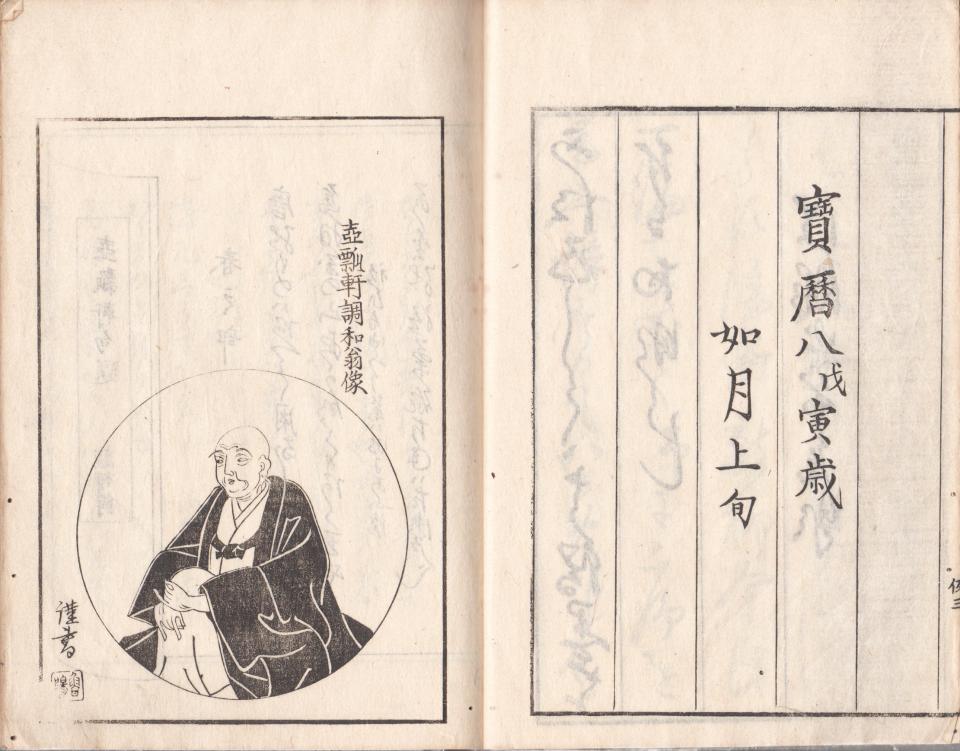 寶暦八戊寅歳
如月上旬
伍三
壺瓢軒調和翁像
謹書